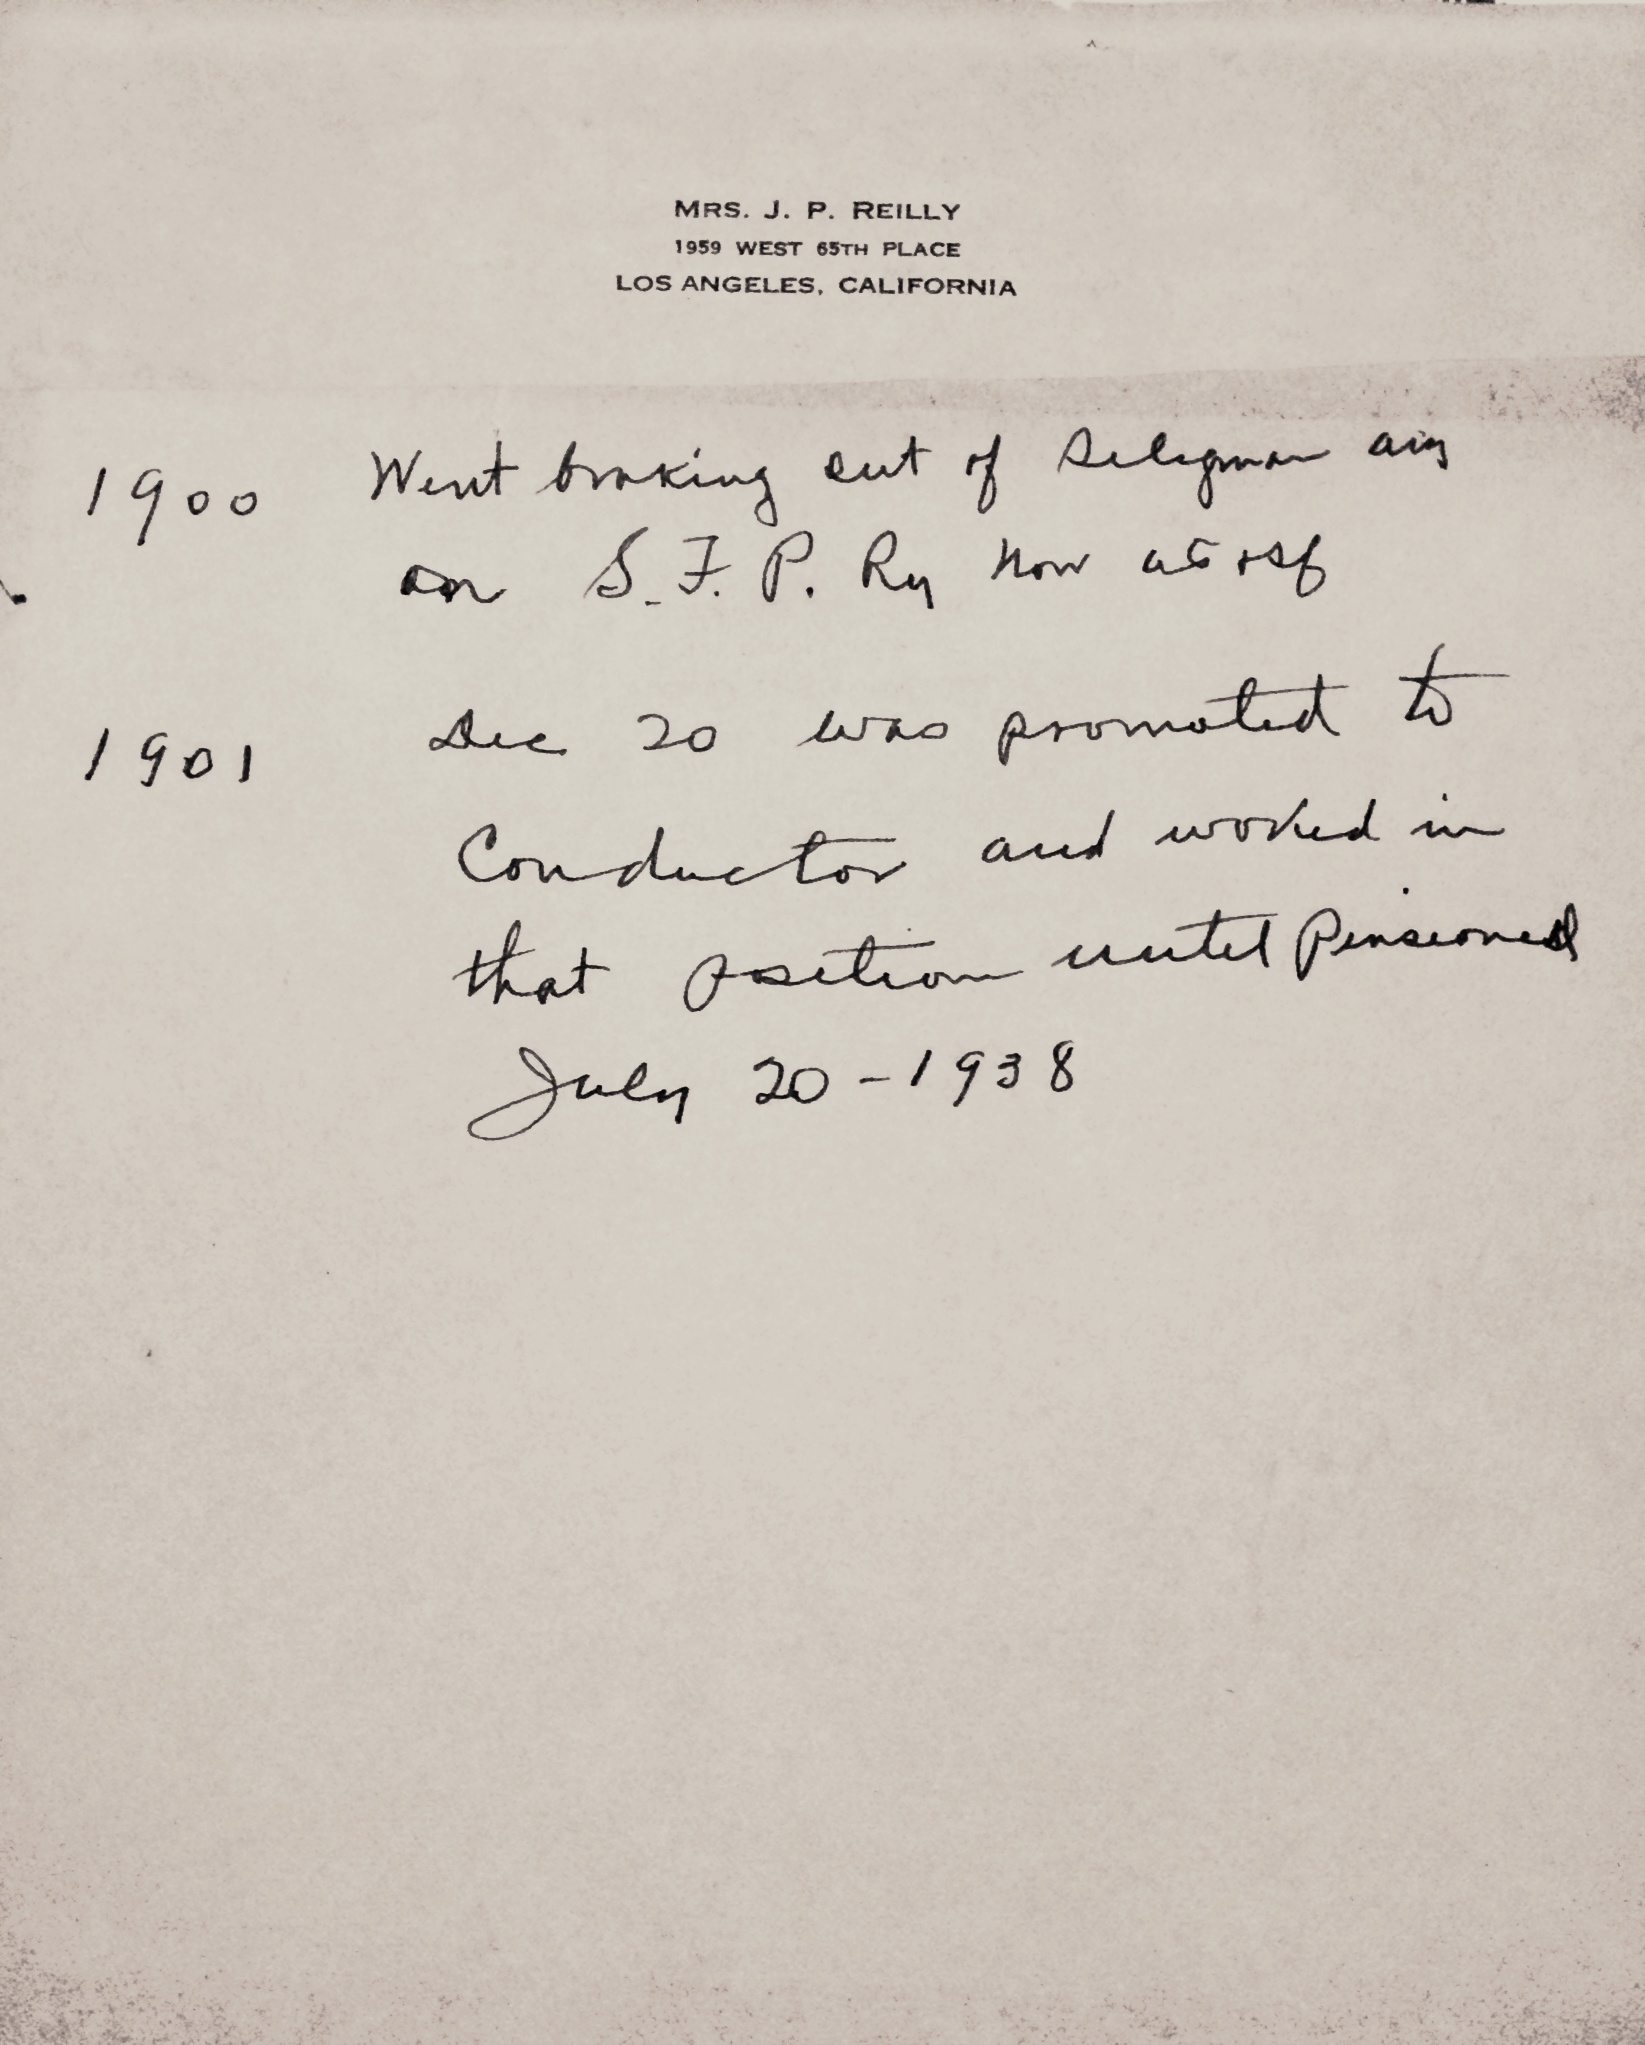 MRS. J. P. REILLY
1959 WEST 65TH PLACE
LOS ANGELES, CALIFORNIA
1900 Went braking out of Seligman ariz
on S. F. P. Ry Now at&sf
1901 Dec 20 was promoted to
Conductor and worked in
that position until Pensioned
July 20-1938